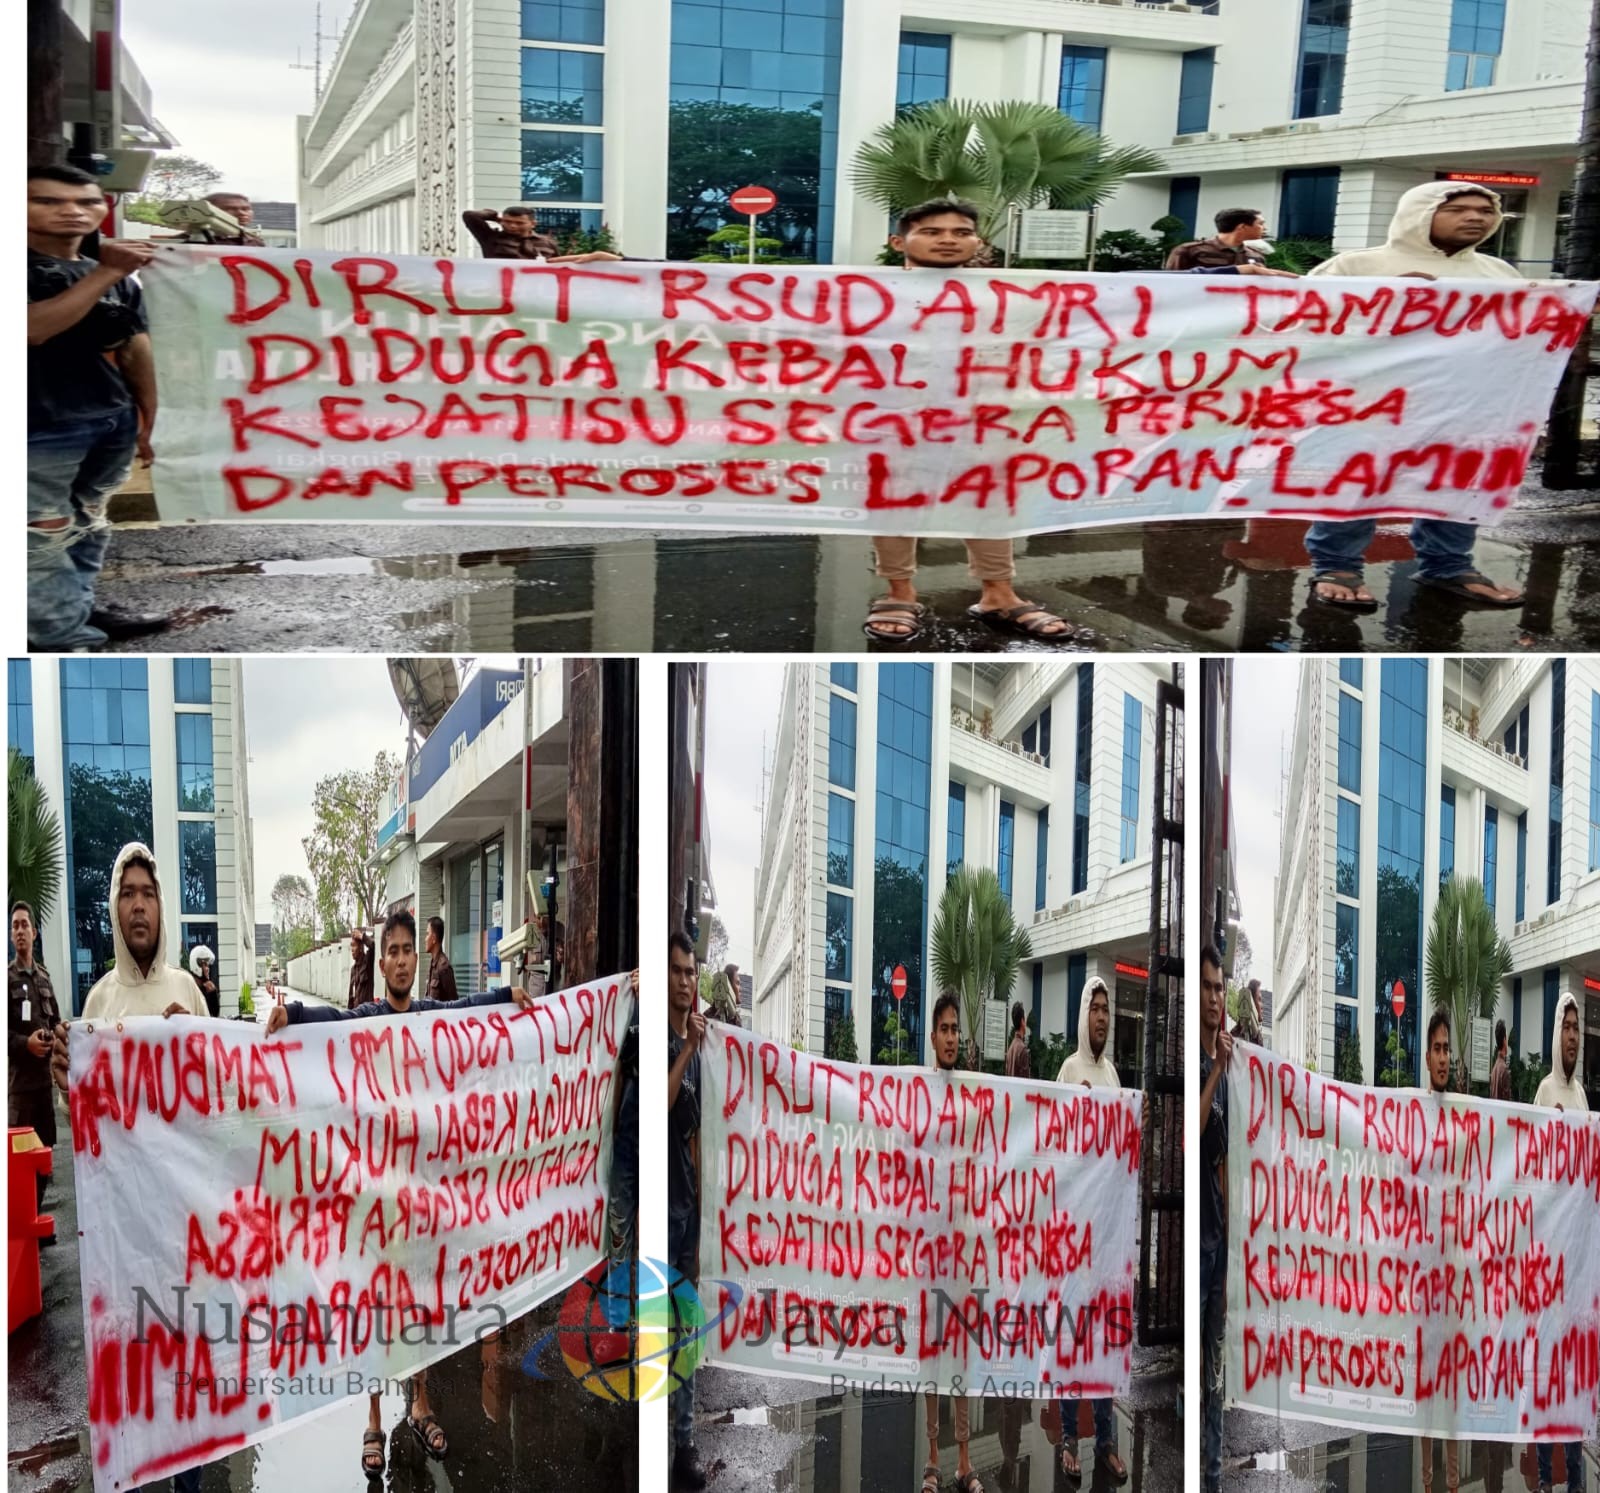 SELAMAT DATANG DI KEJ
DIRUT RSUD AMRI TAMBUNAN
DIDUGA KEBAL HUKUM.
KEJATISU SEGERA PERIKSA
DAN PEROSES LAPORAN "LAMIIN
BRI
ATM
DIRUT RSUD AMRI TAMBUNAN
DIDUGA KEBAL HUKUM
KEJATISU SEGERA PERIKSA
DAN PEROSES LAPORAN "LAMIIN
DIRUT RSUD AMRI TAMBUNAN
DIDUGA KEBAL HUKUM.
KEJATISU SEGERA PERIKSA
DAN PEROSES LAPORAN "LAMI
DIRUT RSUD AMRI TAMBUNA
DIDUGA KEBAL HUKUM.
KEJATISU SEGERA PERIKSA
DAN PEROSES LAPORAN "LAMIIN
Nusantara Jaya News
Pemersatu Bangsa Budaya & Agama